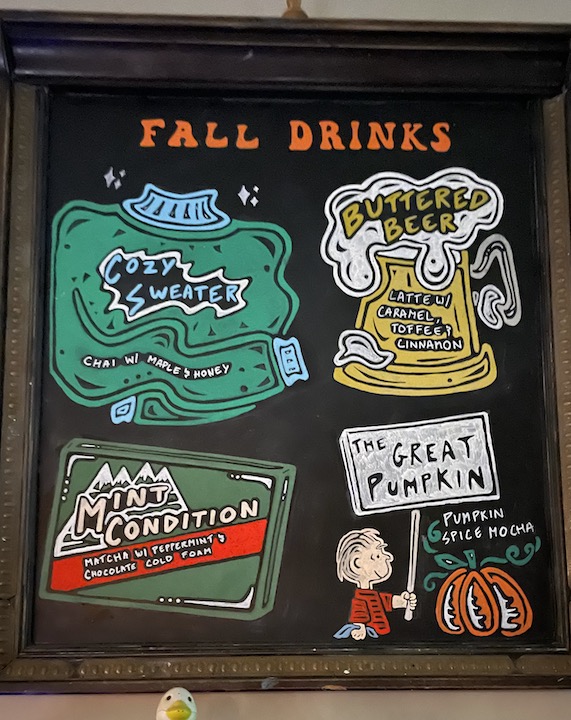 FALL DRINKS
COZY
SWEATER
CHAI W/ MAPLE & HONEY
BUTTERED
BEER
LATTE W/
CARAMEL,
TOFFEE &
CINNAMON
MINT
CONDITION
MATCHA W/ PEPPERMINT &
CHOCOLATE COLD FOAM
THE GREAT
PUMPKIN
PUMPKIN
SPICE MOCHA